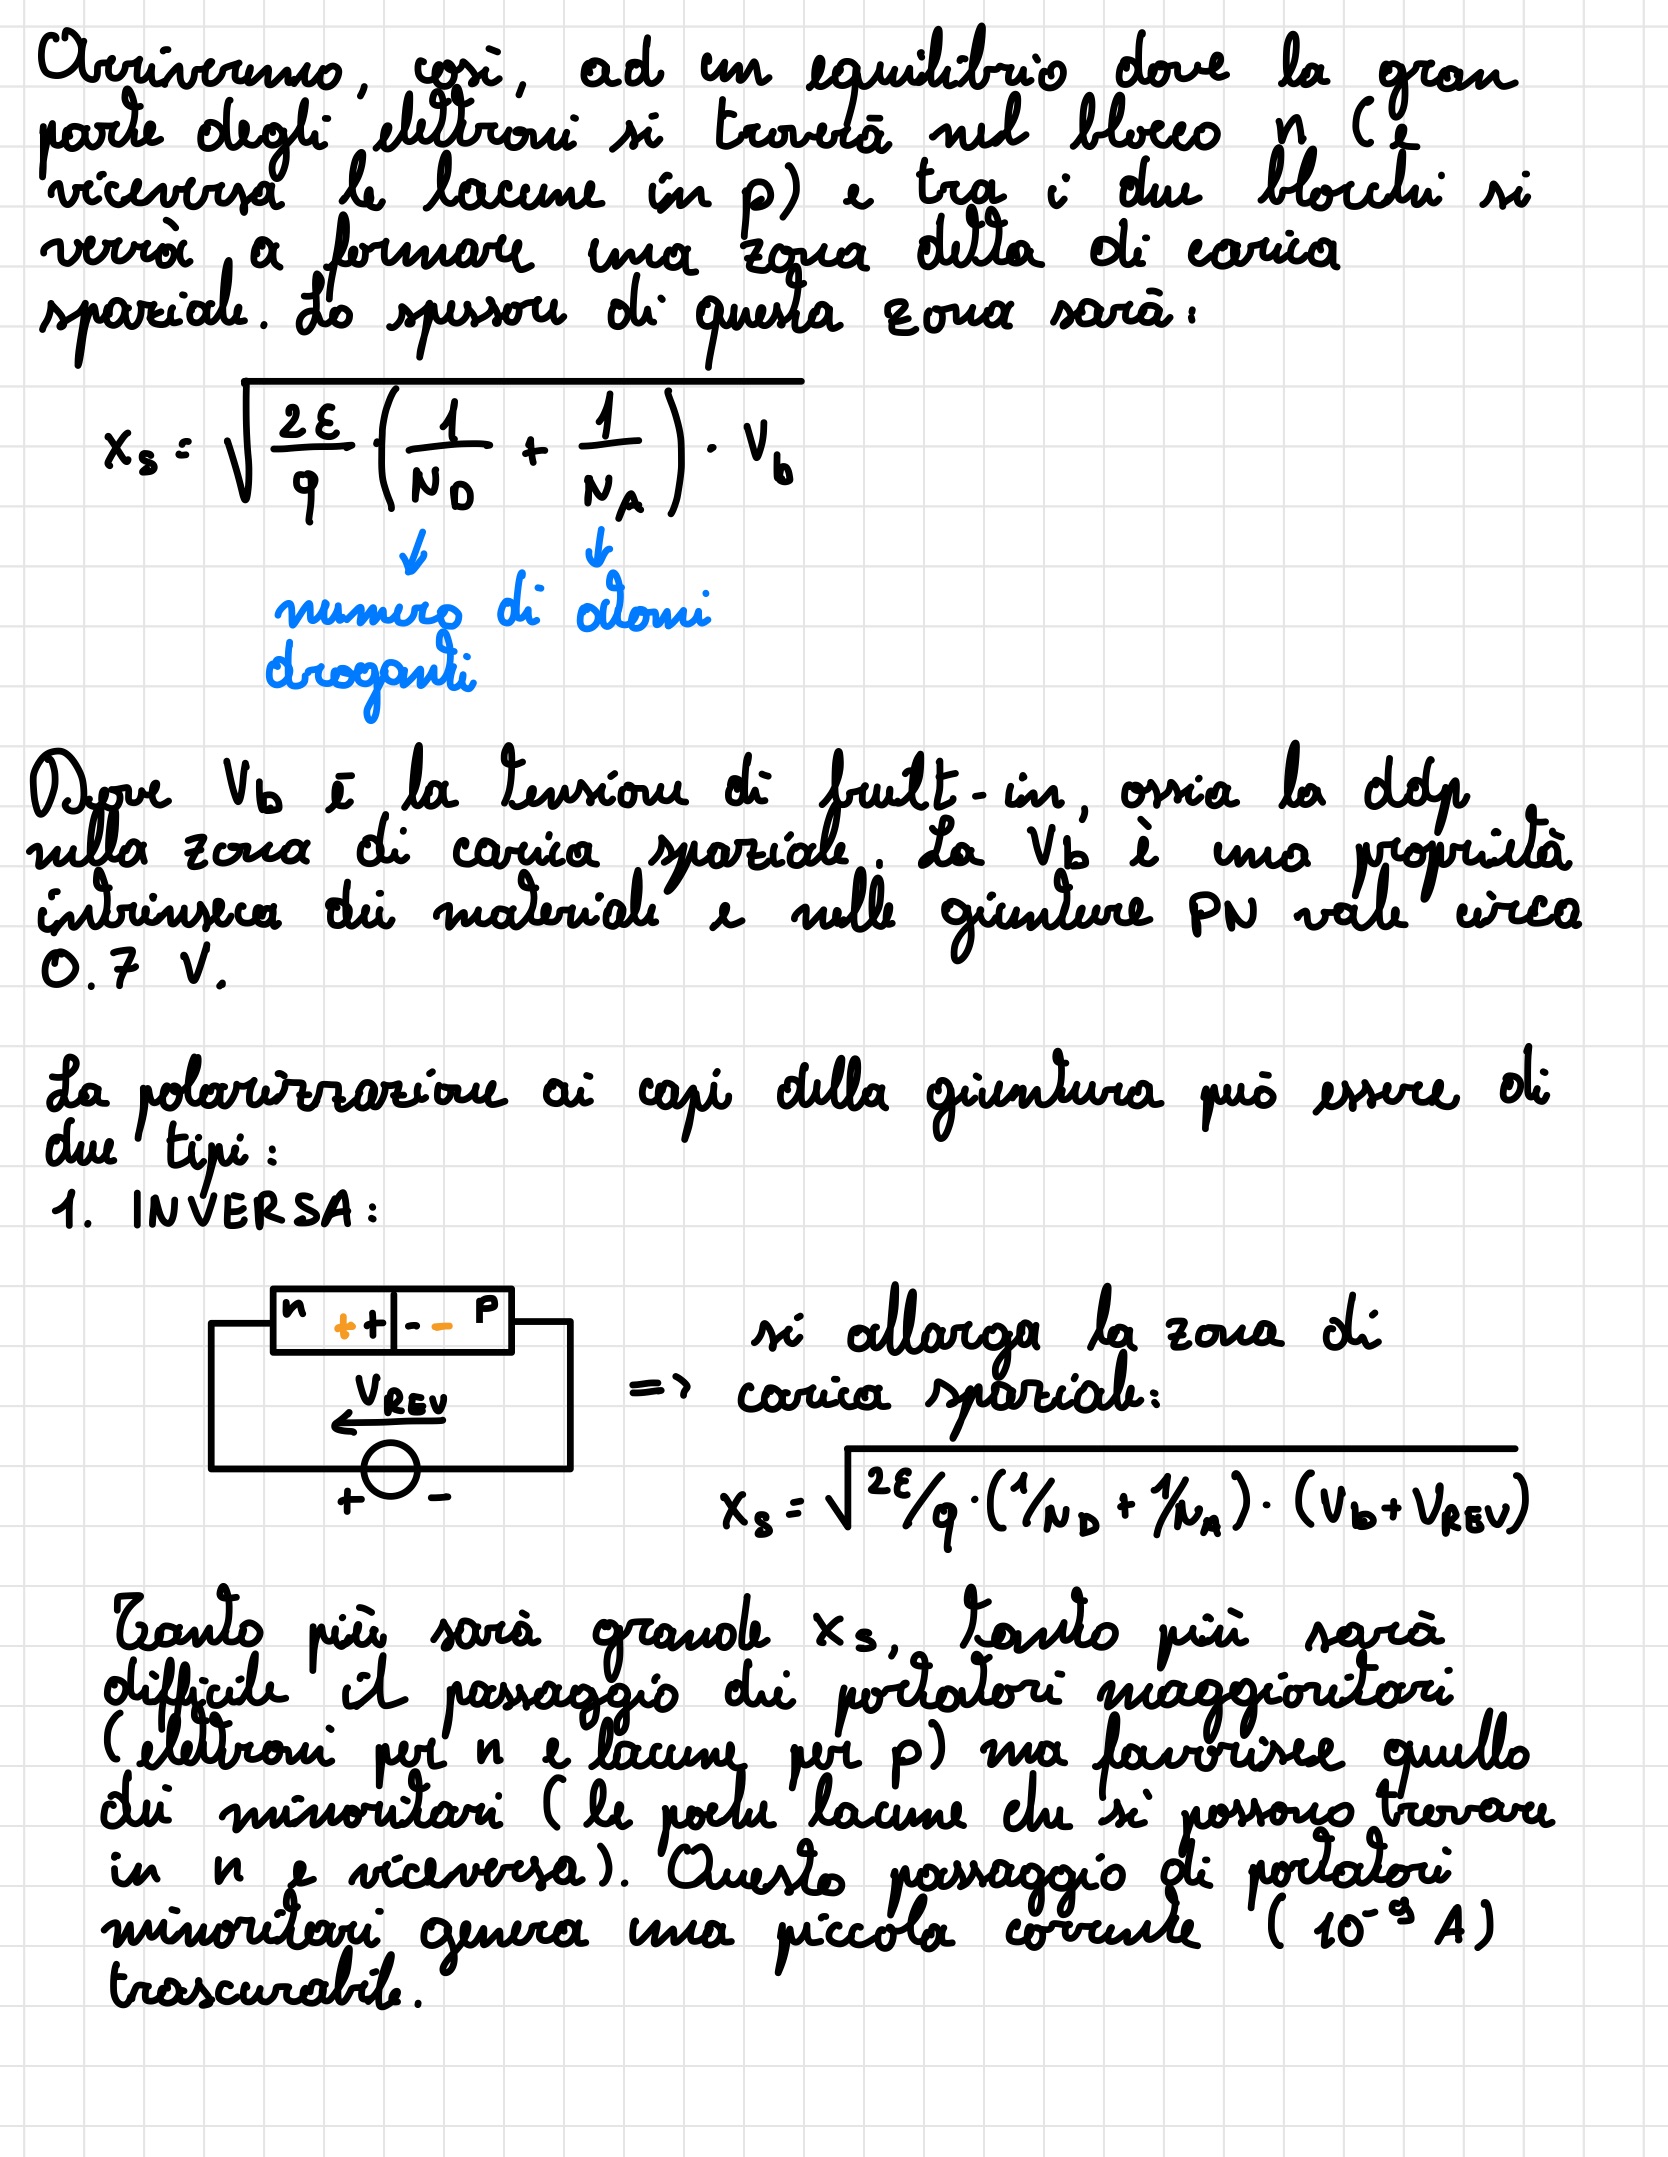 Arriveremo, così, ad un equilibrio dove la gran
parte degli elettroni si troverà nel blocco n (e
viceversa le lacune in p) e tra i due blocchi si
verrà a formare una zona detta di carica
spaziale. Lo spessore di questa zona sarà:
x_s = √(2ε/q · (1/N_D + 1/N_A) · V_b)
↓ ↓
numero di atomi
droganti
Dove V_b è la tensione di built-in, ossia la ddp
nella zona di carica spaziale. La V_b è una proprietà
intrinseca dei materiali e nelle giunture PN vale circa
0.7 V.
La polarizzazione ai capi della giuntura può essere di
due tipi:
1. INVERSA:
n + + - - P
V_REV
+ -
=> si allarga la zona di
carica spaziale:
x_s = √(2ε/q · (1/N_D + 1/N_A) · (V_b + V_REV))
Tanto più sarà grande x_s, tanto più sarà
difficile il passaggio dei portatori maggioritari
(elettroni per n e lacune per p) ma favorisce quello
dei minoritari (le poche lacune che si possono trovare
in n e viceversa). Questo passaggio di portatori
minoritari genera una piccola corrente (10⁻⁹ A)
trascurabile.